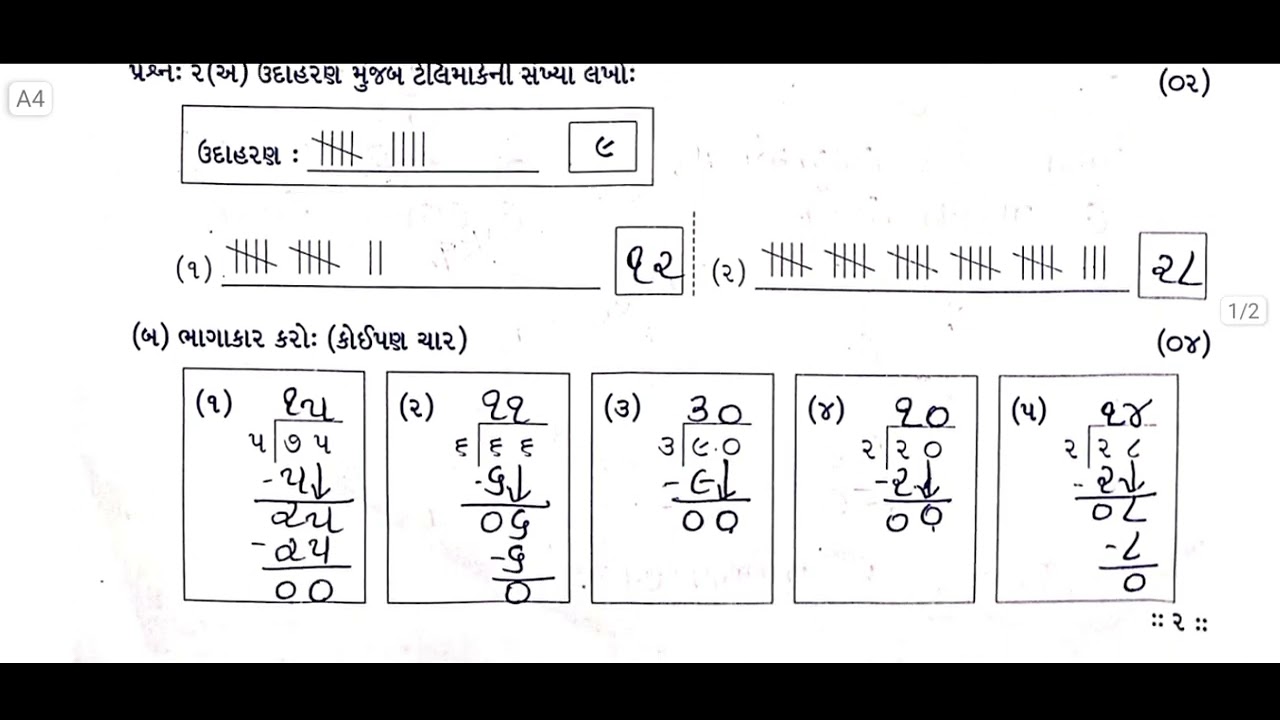 પ્રશ્નઃ ૨(અ) ઉદાહરણ મુજબ ટેલિમાર્કની સંખ્યા લખોઃ (૦૨)
A4
ઉદાહરણ : ૯
(૧) ૧૨ (૨) ૨૮
1/2
(બ) ભાગાકાર કરોઃ (કોઈપણ ચાર) (૦૪)
(૧) ૧૫ (૨) ૧૧ (૩) ૩૦ (૪) ૧૦ (૫) ૧૪
૫ ૭૫ ૬ ૬૬ ૩ ૯૦ ૨ ૨૦ ૨ ૨૮
-૫↓ -૬↓ -૯↓ -૨↓ -૨↓
૨૫ ૦૬ ૦૦ ૦૦ ૦૮
-૨૫ -૬ -૮
૦૦ ૦ ૦
:: ૨ ::